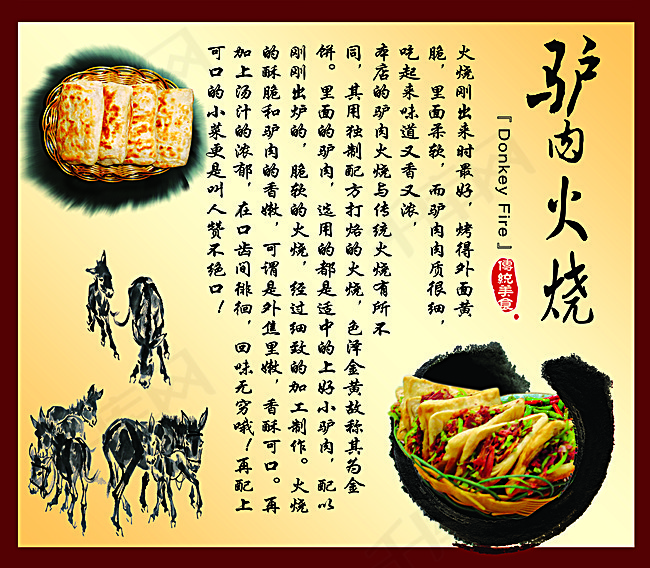 驴肉火烧
『Donkey Fire』
傳统美食
火烧刚出来时最好，烤得外面黄
脆，里面柔软，而驴肉肉质很细，
吃起来味道又香又浓，
本店的驴肉火烧与传统火烧有所不
同，其用独制配方打烙的火烧，色泽金黄故称其为金
饼。里面的驴肉，选用的都是适中的上好小驴肉，配以
刚刚出炉的，脆软的火烧，经过细致的加工制作。火烧
的酥脆和驴肉的香嫩，可谓是外焦里嫩，香酥可口。再
加上汤汁的浓郁，在口齿间徘徊，回味无穷哦！再配上
可口的小菜更是叫人赞不绝口！